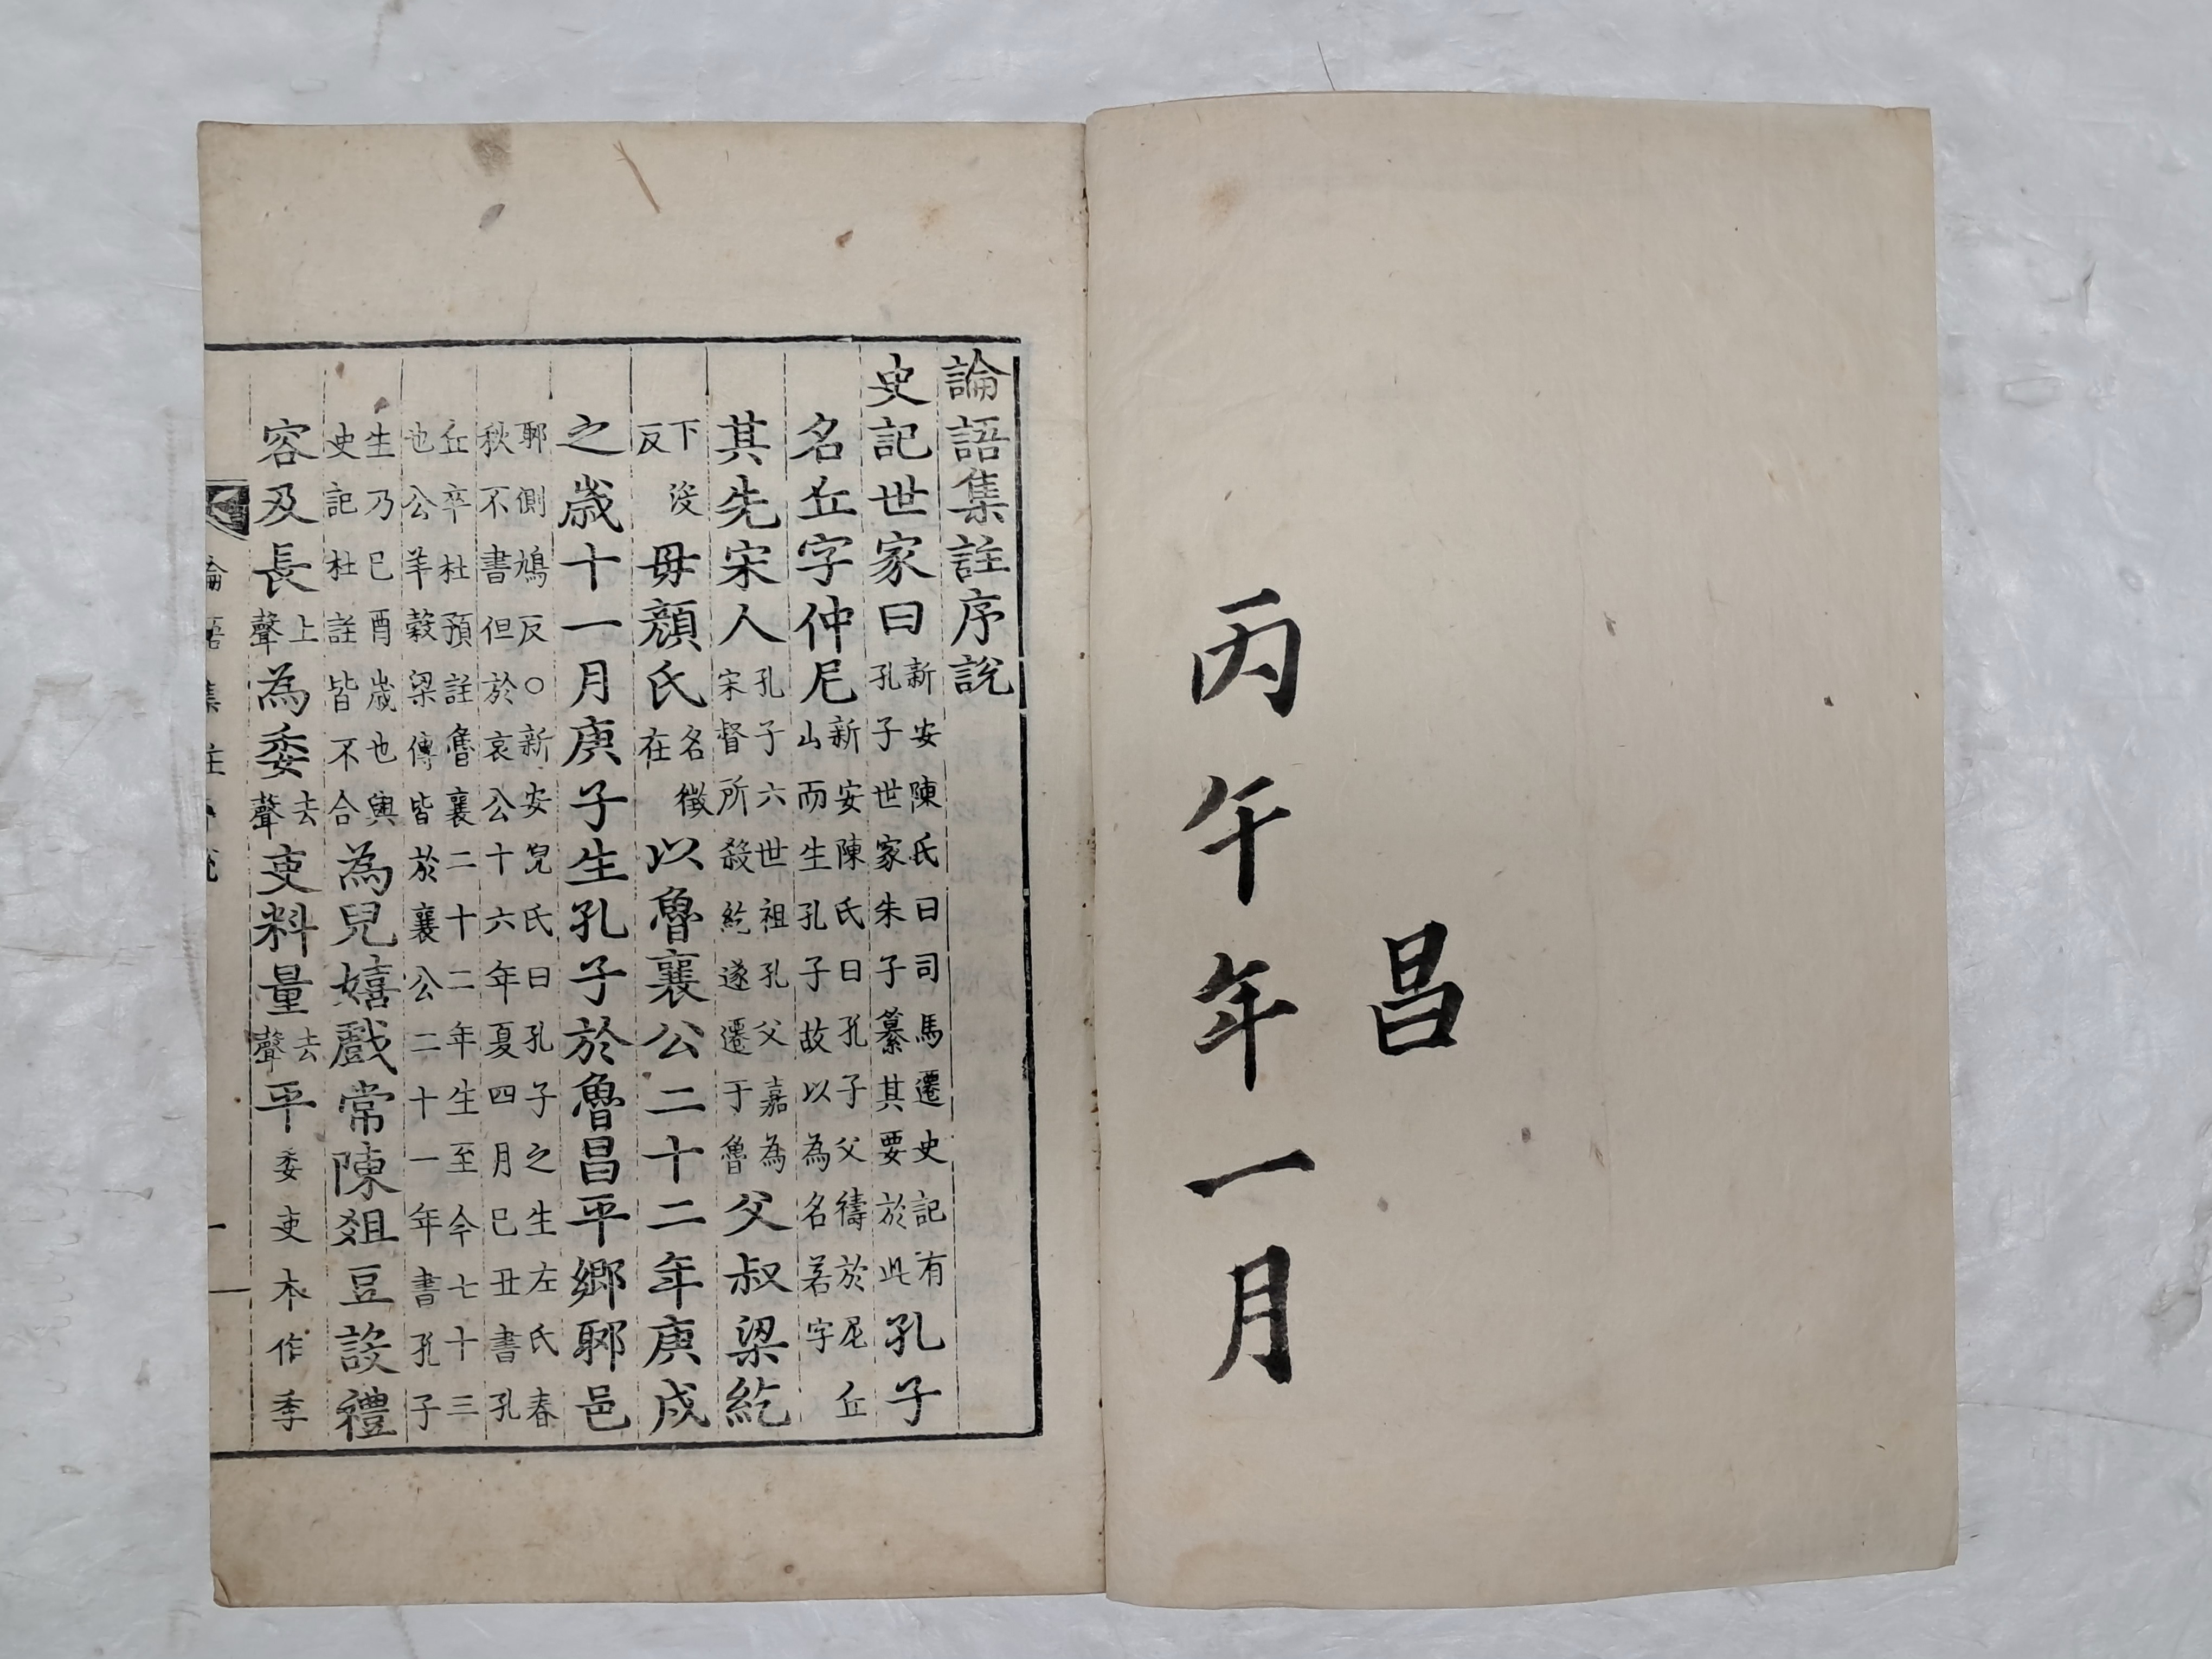 昌
丙午年一月
論語集註序說
史記世家曰新安陳氏曰司馬遷史記有孔子世家朱子纂其要於此孔子
名丘字仲尼新安陳氏曰孔子父禱於尼丘山而生孔子故以為名若字
其先宋人孔子六世祖孔父嘉為宋督所殺紇遂遷于魯父叔梁紇
下沒反母顏氏名徵在以魯襄公二十二年庚戌
之歲十一月庚子生孔子於魯昌平鄉郰邑
郰側鳩反○新安兒氏曰孔子之生左氏春秋不書但於哀公十六年夏四月巳丑書孔
丘卒杜預註魯襄二十二年生至今七十三也公羊穀梁傳皆於襄公二十一年書孔子
生乃巳酉歲也與史記杜註皆不合為兒嬉戲常陳俎豆設禮
容及長上聲為委去聲吏料量去聲平委吏本作季